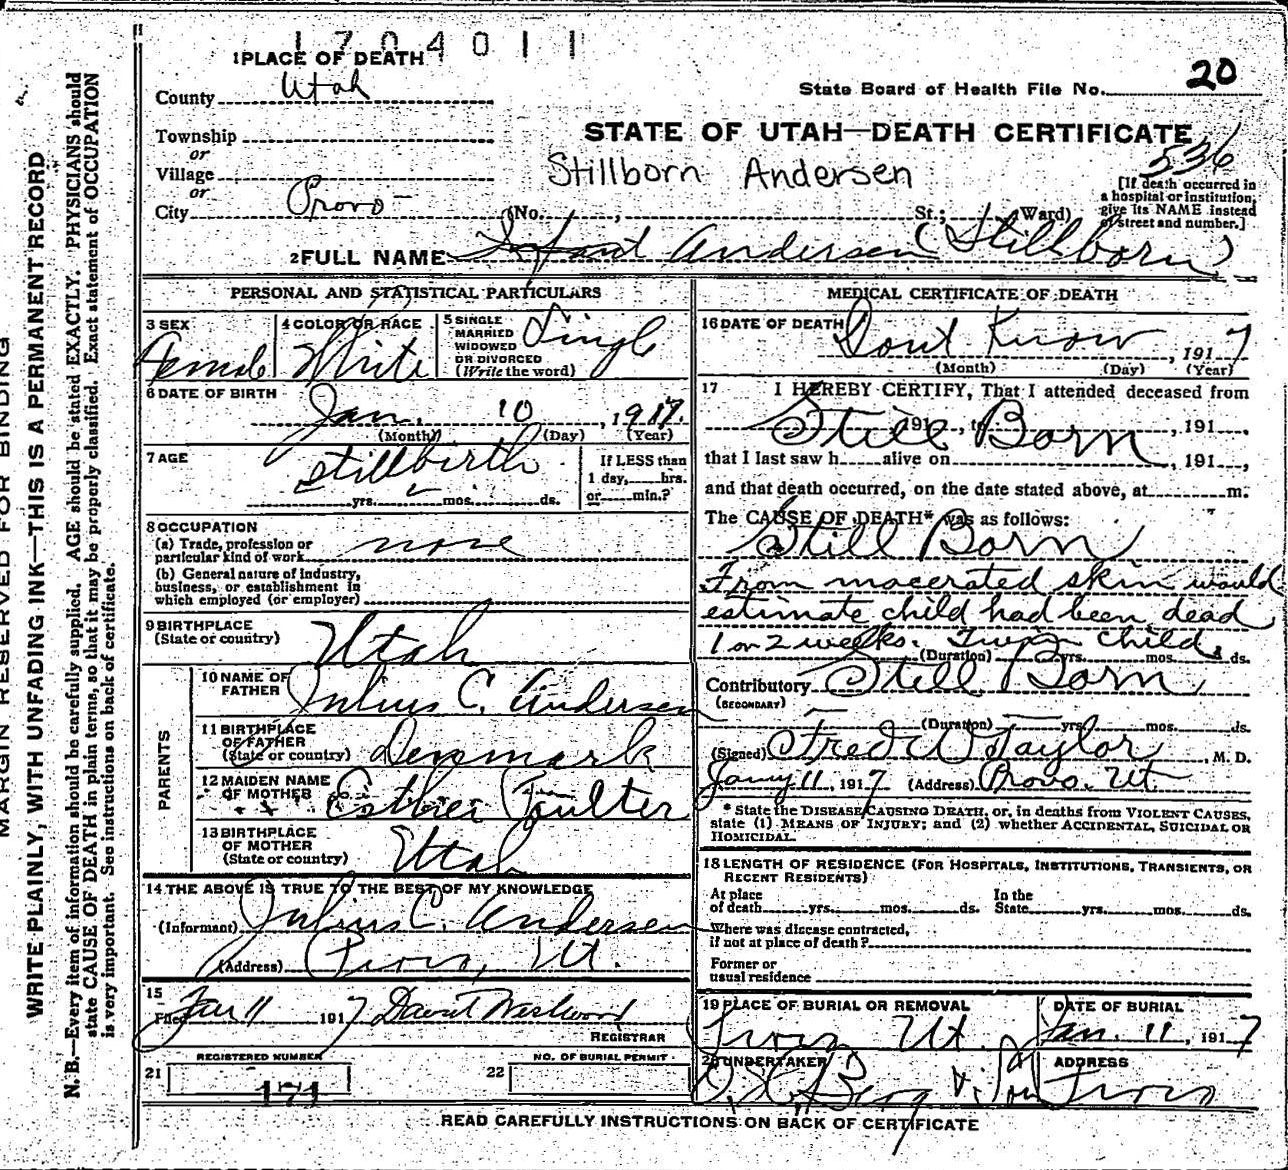 1704011
1 PLACE OF DEATH
County Utah
Township
or
Village
or
City Provo (No. , St.; Ward)
State Board of Health File No. 20
STATE OF UTAH—DEATH CERTIFICATE
536
Stillborn Andersen
[If death occurred in
a hospital or institution,
give its NAME instead
of street and number.]
2 FULL NAME Infant Andersen (Stillborn)
PERSONAL AND STATISTICAL PARTICULARS
3 SEX Female
4 COLOR OR RACE White
5 SINGLE
MARRIED
WIDOWED
OR DIVORCED
(Write the word) Single
6 DATE OF BIRTH
Jan. 10, 1917.
(Month) (Day) (Year)
7 AGE
stillbirth
yrs. mos. ds.
If LESS than
1 day, hrs.
or min.?
8 OCCUPATION
(a) Trade, profession or
particular kind of work none
(b) General nature of industry,
business, or establishment in
which employed (or employer)
9 BIRTHPLACE
(State or country) Utah
PARENTS
10 NAME OF
FATHER Julius C. Andersen
11 BIRTHPLACE
OF FATHER
(State or country) Denmark
12 MAIDEN NAME
OF MOTHER Esther Poulter
13 BIRTHPLACE
OF MOTHER
(State or country) Utah
14 THE ABOVE IS TRUE TO THE BEST OF MY KNOWLEDGE
(Informant) Julius C. Andersen
(Address) Provo, Ut.
15
Filed Jan 11 1917 David Westwood
REGISTRAR
REGISTERED NUMBER
21 171
NO. OF BURIAL PERMIT
22
MEDICAL CERTIFICATE OF DEATH
16 DATE OF DEATH Dont Know, 1917
(Month) (Day) (Year)
17 I HEREBY CERTIFY, That I attended deceased from
Still 191, to Born, 191,
that I last saw h alive on, 191,
and that death occurred, on the date stated above, at m.
The CAUSE OF DEATH* was as follows:
Still Born
From macerated skin would
estimate child had been dead
1 or 2 weeks. Twin Child.
(Duration) yrs. mos. ds.
Contributory Still Born
(SECONDARY)
(Duration) yrs. mos. ds.
(Signed) Fred W Taylor, M. D.
Jany 11, 1917 (Address) Provo. Ut.
* State the DISEASE CAUSING DEATH, or, in deaths from VIOLENT CAUSES,
state (1) MEANS OF INJURY; and (2) whether ACCIDENTAL, SUICIDAL OR
HOMICIDAL.
18 LENGTH OF RESIDENCE (FOR HOSPITALS, INSTITUTIONS, TRANSIENTS, OR
RECENT RESIDENTS)
At place
of death yrs. mos. ds.
In the
State yrs. mos. ds.
Where was disease contracted,
if not at place of death?
Former or
usual residence
19 PLACE OF BURIAL OR REMOVAL
Provo Ut.
DATE OF BURIAL
Jan. 11, 1917
20 UNDERTAKER
O. H. Berg & Son
ADDRESS
Provo
READ CAREFULLY INSTRUCTIONS ON BACK OF CERTIFICATE
MARGIN RESERVED FOR BINDING
WRITE PLAINLY, WITH UNFADING INK—THIS IS A PERMANENT RECORD
N. B.—Every item of information should be carefully supplied. AGE should be stated EXACTLY. PHYSICIANS should
state CAUSE OF DEATH in plain terms, so that it may be properly classified. Exact statement of OCCUPATION
is very important. See instructions on back of certificate.